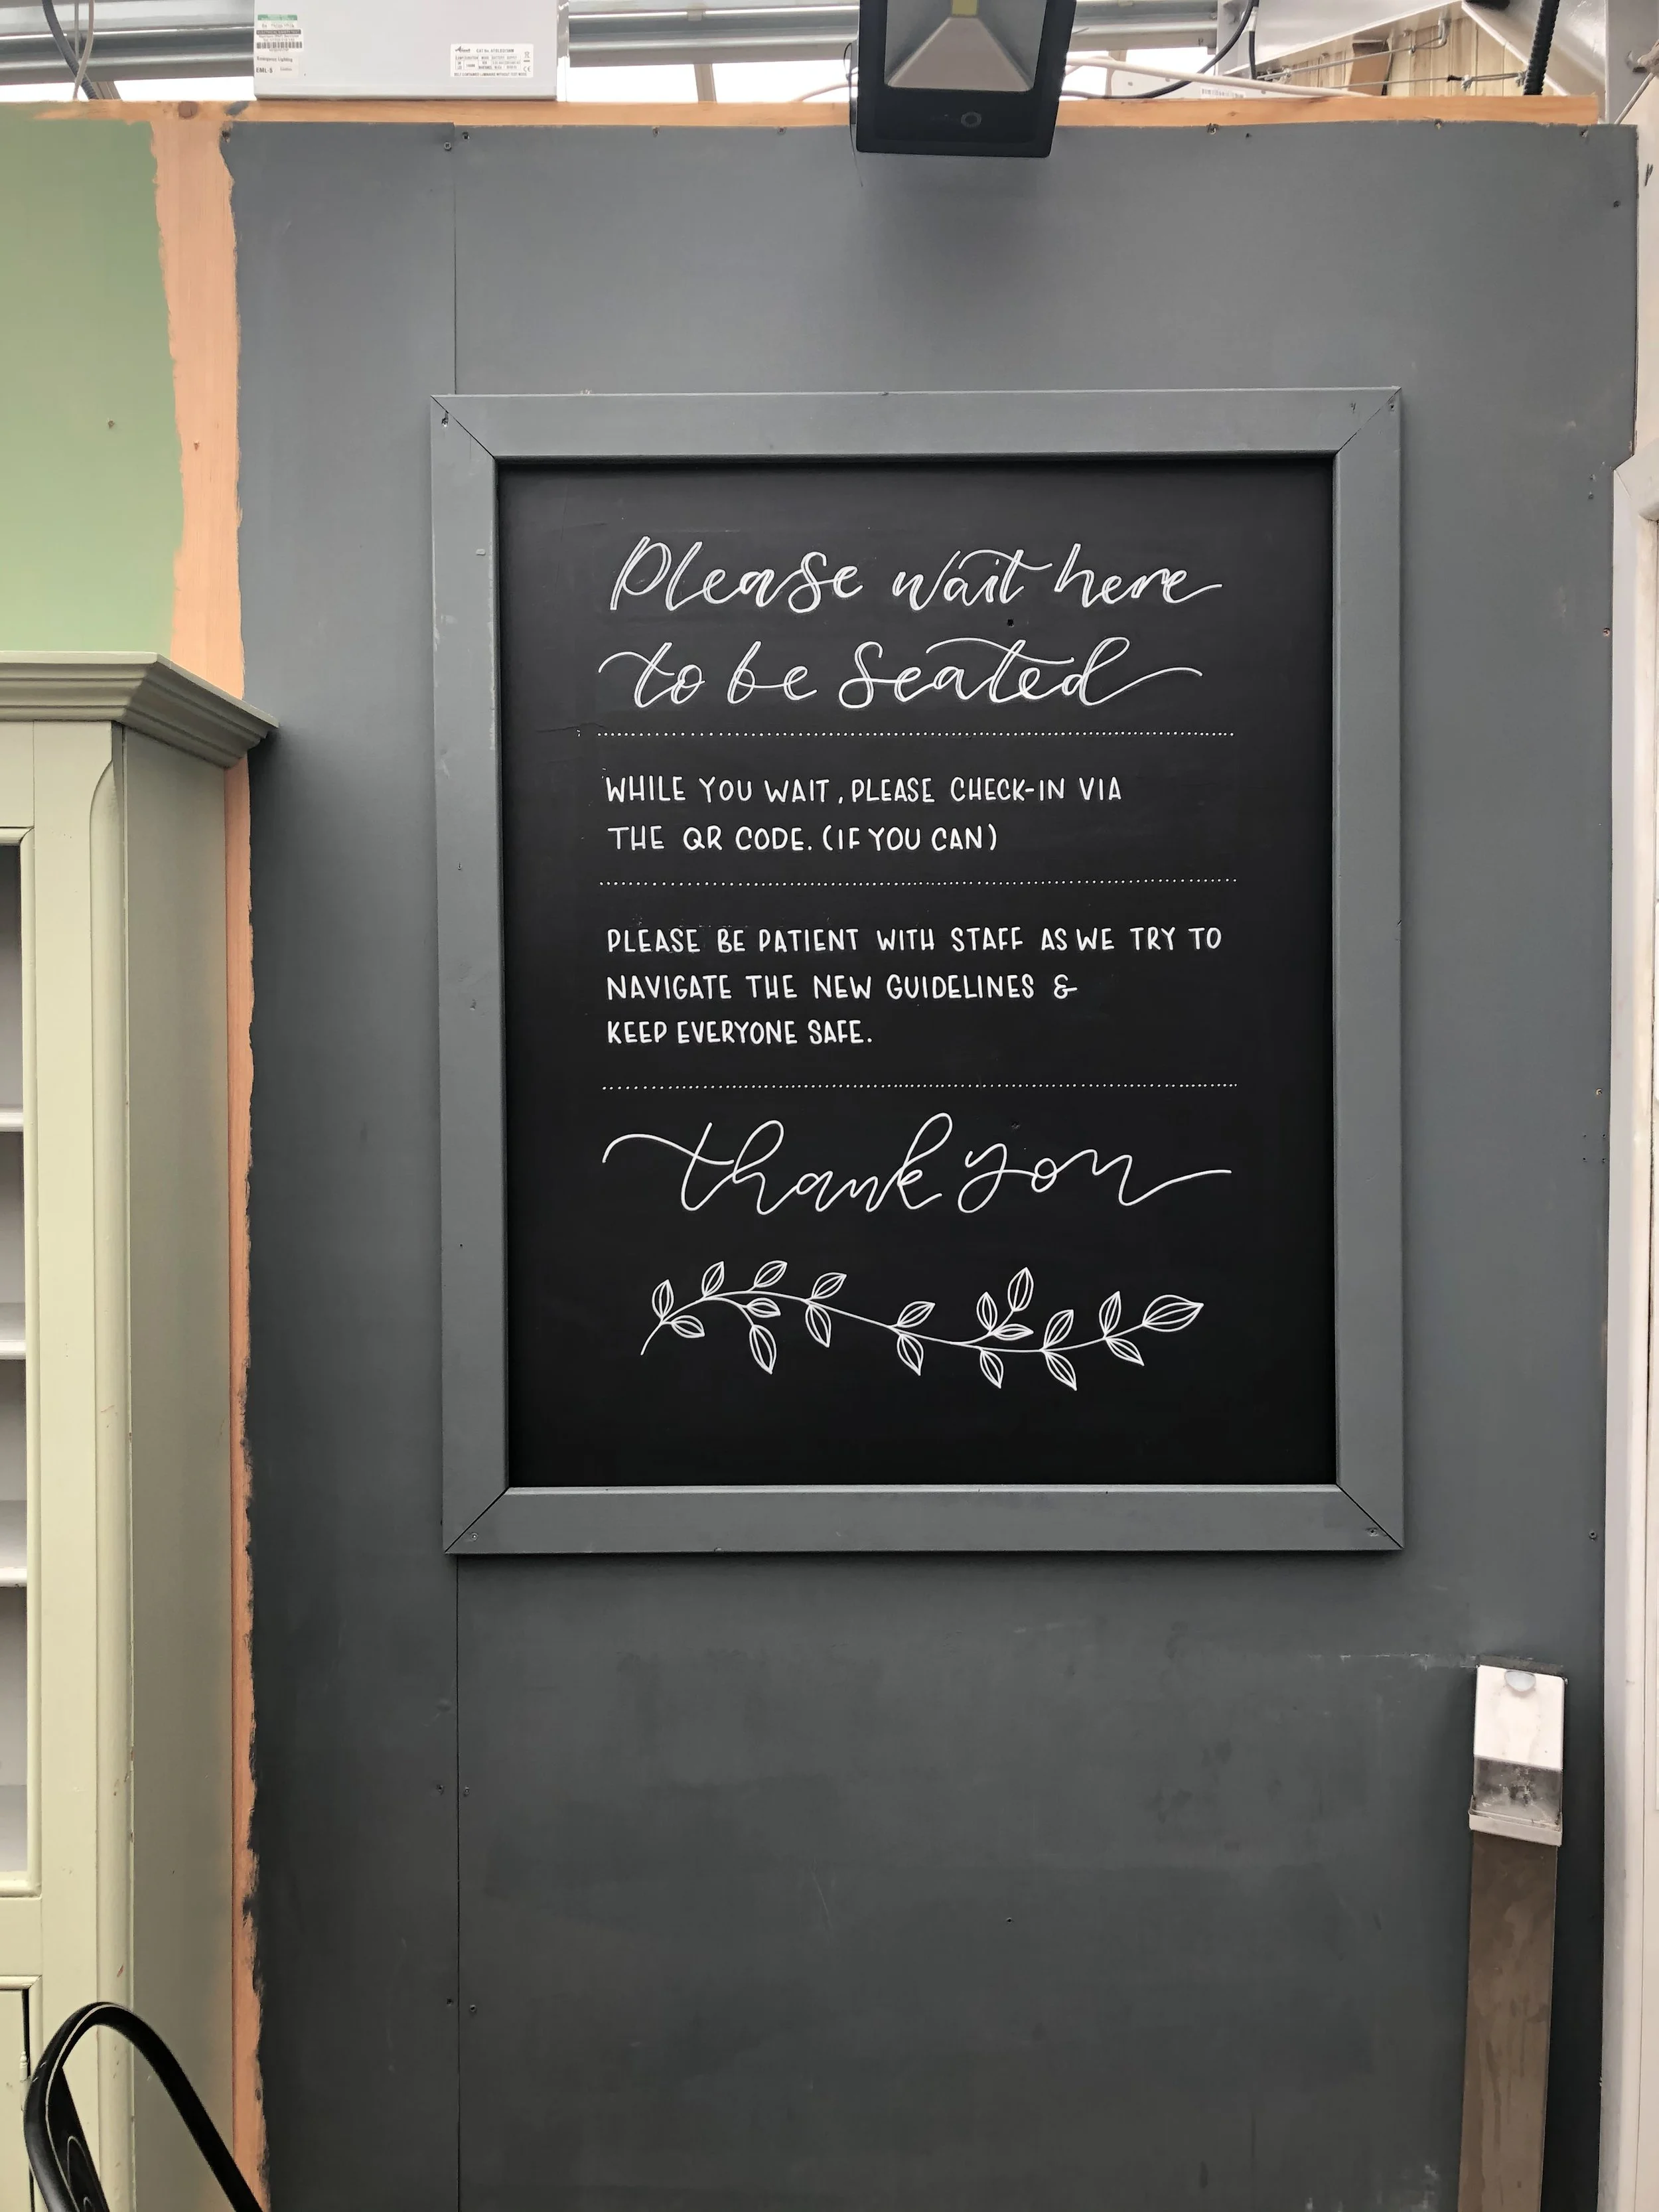 EML-5
Please wait here
to be seated
WHILE YOU WAIT, PLEASE CHECK-IN VIA
THE QR CODE. (IF YOU CAN)
PLEASE BE PATIENT WITH STAFF AS WE TRY TO
NAVIGATE THE NEW GUIDELINES &
KEEP EVERYONE SAFE.
thank you